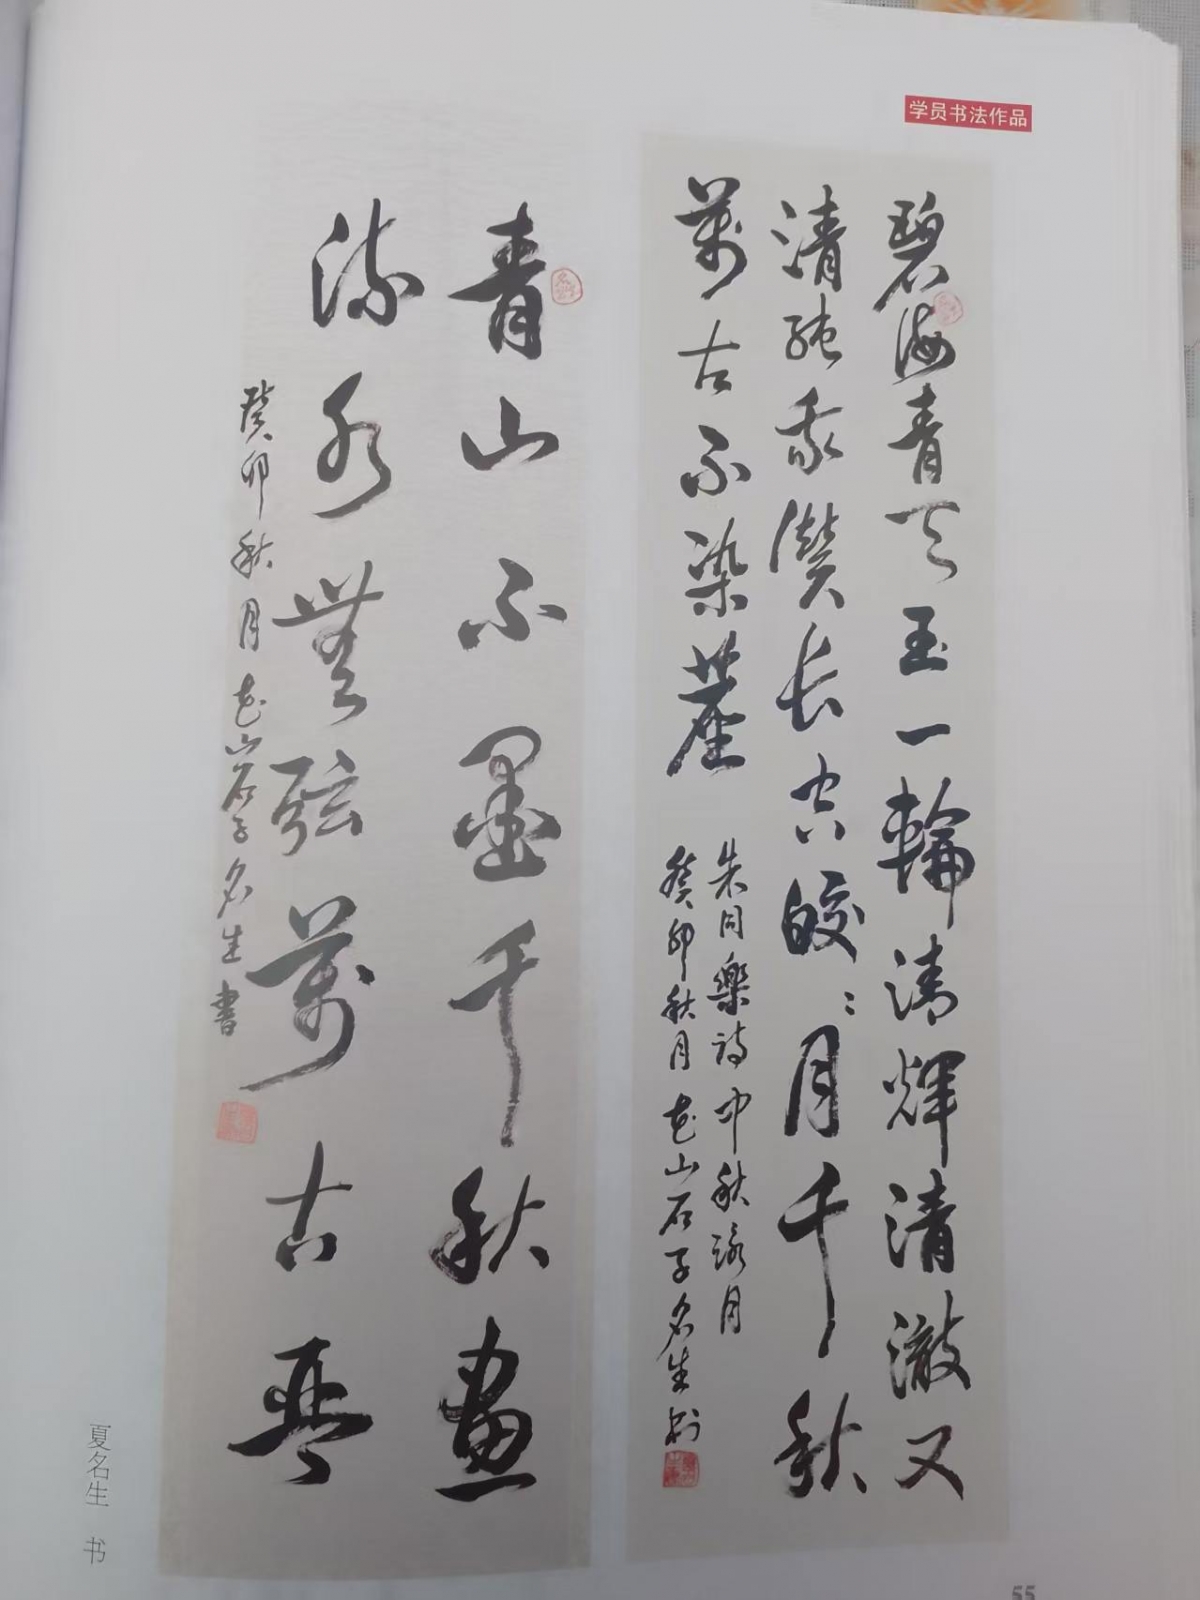 学员书法作品
碧海青天玉一輪清輝清澈又
清純我讚長空皎皎月千秋
萬古不染塵
朱同樂詩中秋詠月
癸卯秋月山石子名生书
青山不墨千秋畫
流水無弦萬古琴
癸卯秋月山石子名生書
夏名生 书
55